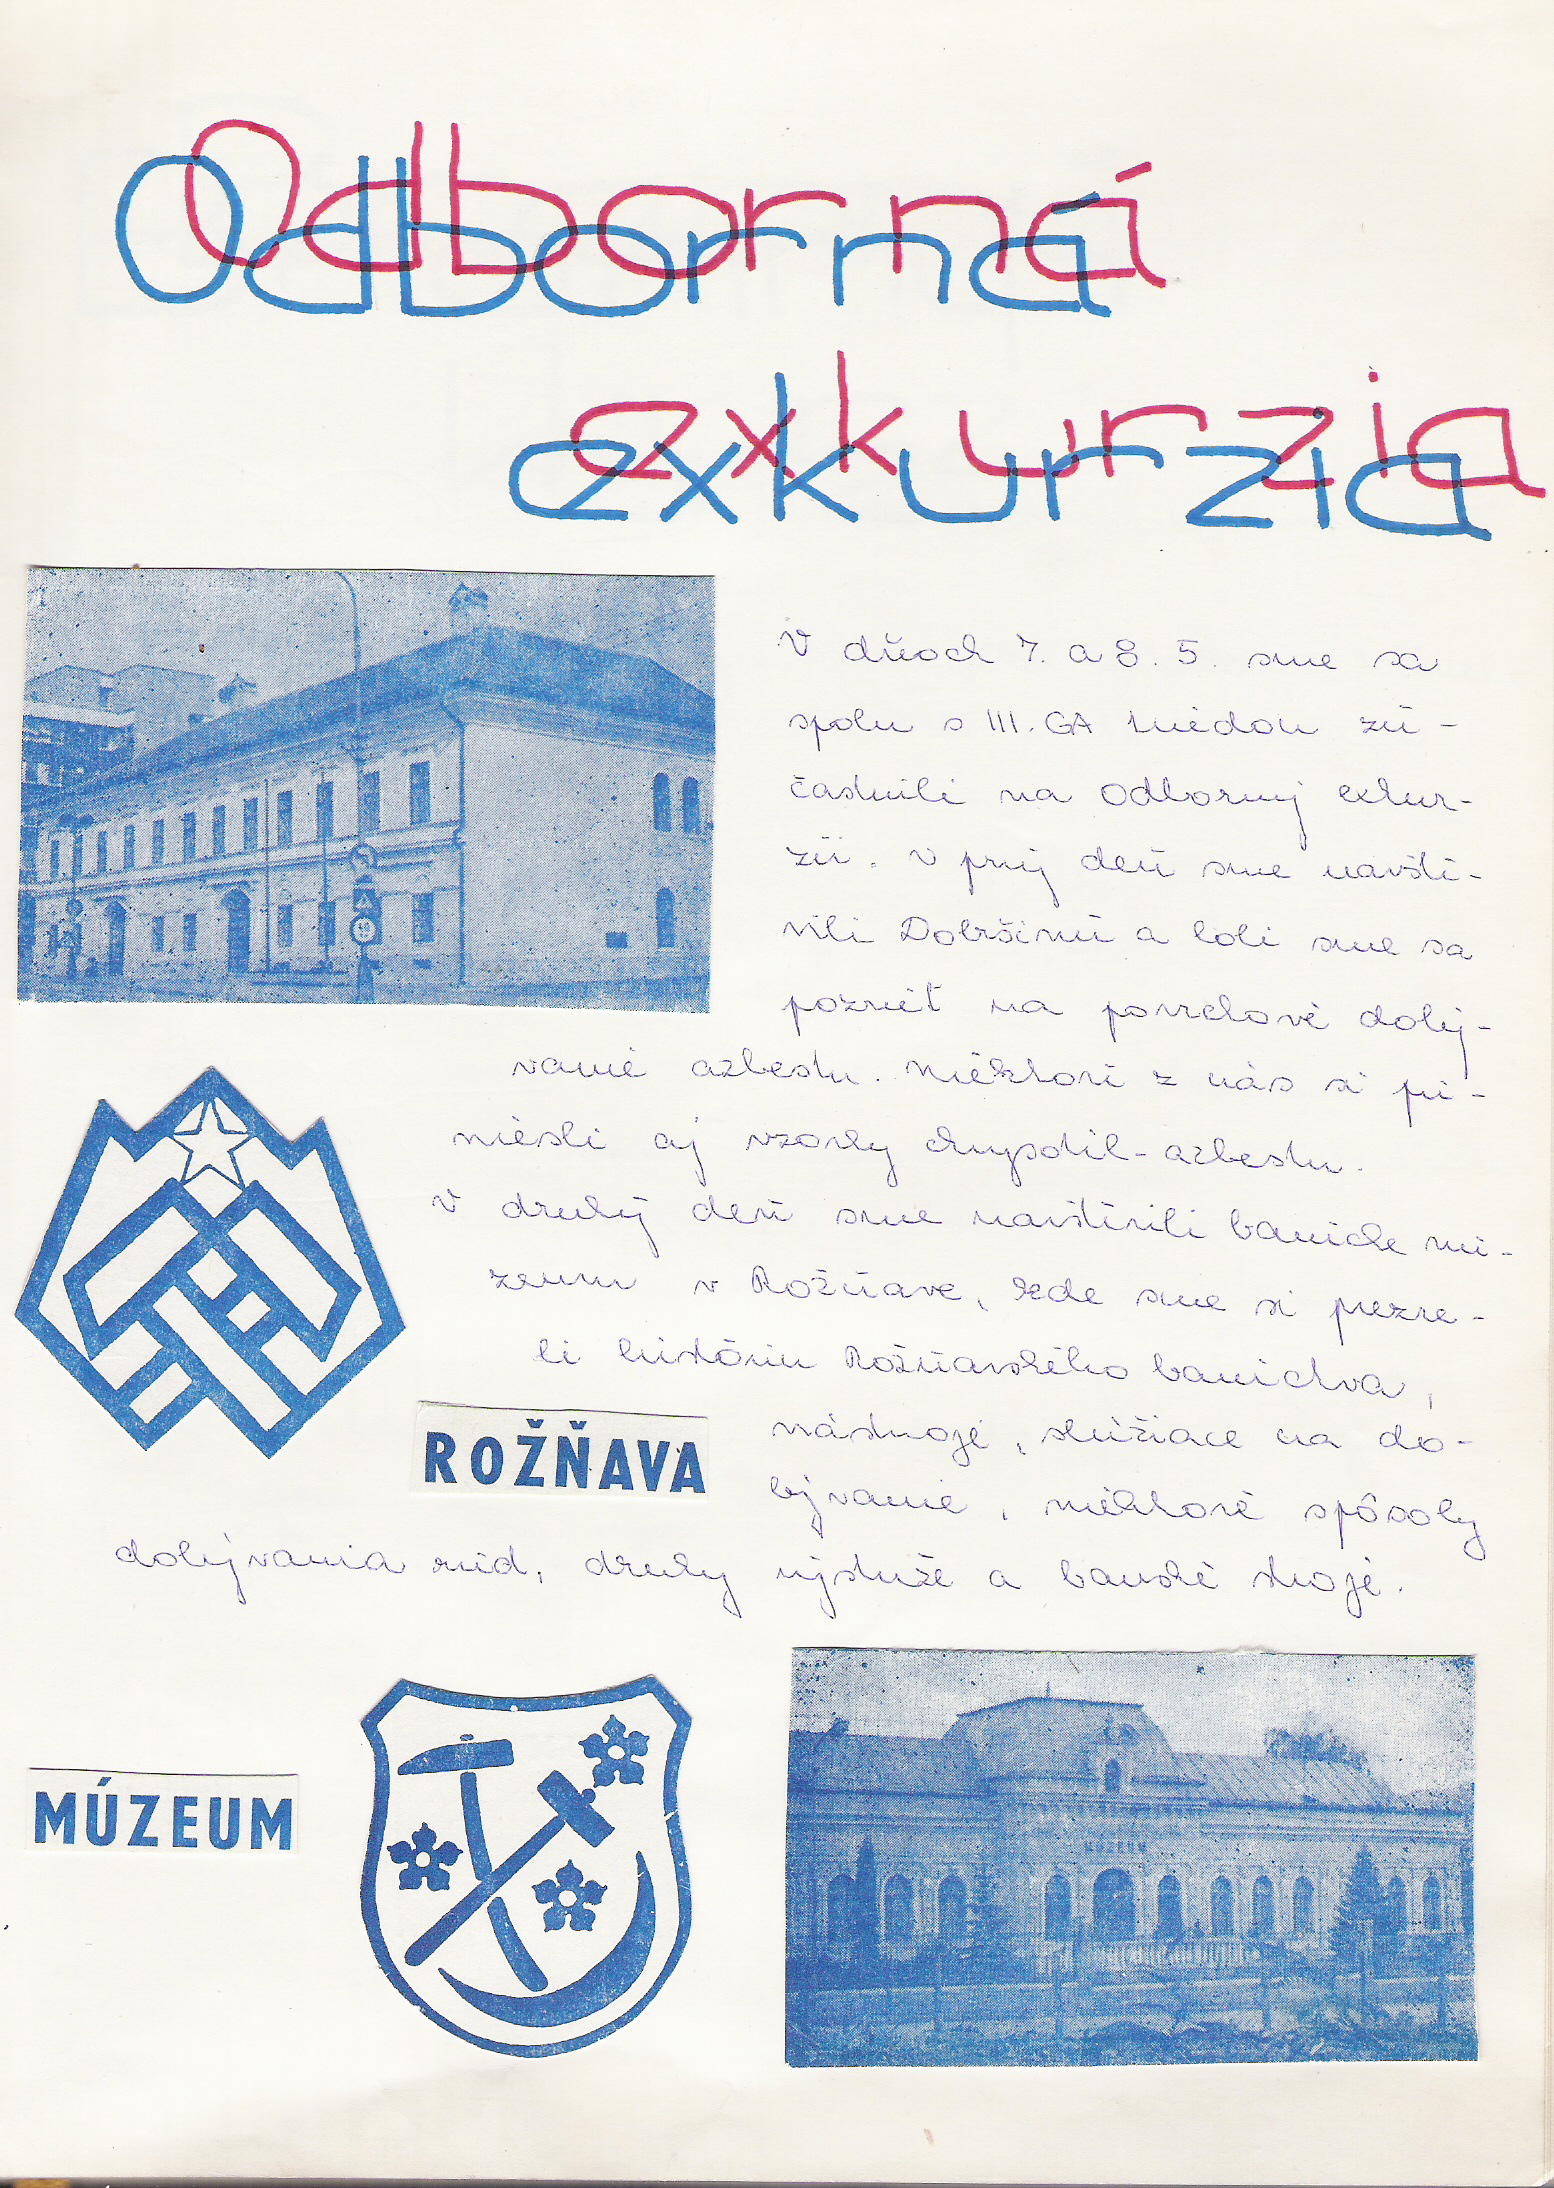 Odborná
exkurzia
V dňoch 7. a 8. 5. sme sa
spolu s III. GA triedou zú-
častnili na odbornej exkur-
zii. V prvý deň sme navští-
vili Dobšinú a boli sme sa
pozrieť na povrchové dobý-
vanie azbestu. Niektorí z nás si pri-
niesli aj vzorky chryzotil-azbestu.
V druhý deň sme navštívili banícke mú-
zeum v Rožňave, kde sme si prezre-
li históriu Rožňavského baníctva,
ROŽŇAVA
nástroje, slúžiace na do-
bývanie, niektoré spôsoby
dobývania rúd, druhy výstuže a banské stroje.
MÚZEUM
MÚZEUM